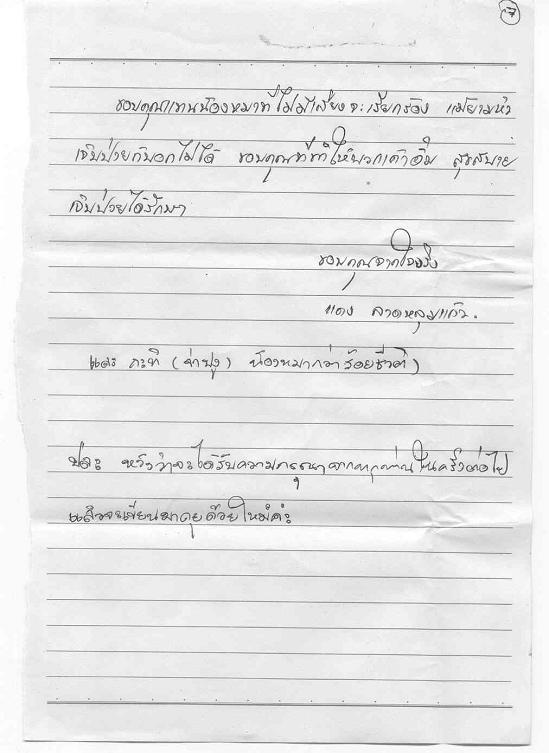 7
ขอบคุณแทนน้องหมาที่ไม่มีเสียงจะเรียกร้อง แม้ยามหิว
เจ็บป่วยก็บอกไม่ได้ ขอบคุณที่ทำให้พวกเค้าอิ่ม สุขสบาย
เจ็บป่วยได้รักษา
ขอบคุณจากใจจริง
แดง ลาดหลุมแก้ว.
และ กะทิ (จ่าฝูง) น้องหมากว่าร้อยชีวิต)
ปล: หวังว่าจะได้รับความกรุณาจากทุกท่านในครั้งต่อไป
แล้วจะเขียนมาคุยด้วยใหม่ค่ะ